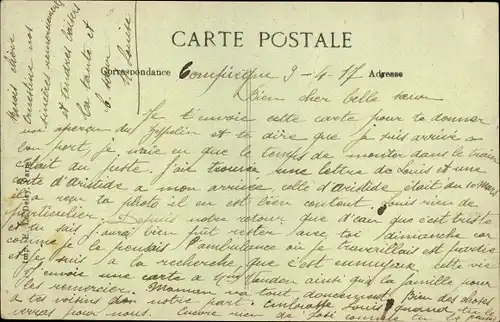 CARTE POSTALE
Correspondance Adresse
Compiègne 9-4-17
Bien cher belle sœur
Je t'envoie cette carte pour te donner
un aperçu du Zeppelin et te dire que je suis arrivé a
bon port, je n'ai eu que le temps de monter dans le train
c'était du juste. J'ai trouver une lettre de Louis et une
carte d'Aristide a mon arrivée celle d'Aristide était du 30 Mars
il a reçu ta photo il en est bien content. Louis rien de
particulier. Depuis notre retour que d'eau que c'est triste
et tu sais j'aurai bien put rester avec toi dimanche car
comme je le pensais l'ambulance où je travaillais est partie
et je suis a la recherche que c'est ennuyeux cette vie
J'envoie une carte a Mme ainsi que la famille pour
les remercier. Maman va tout doucement. Bien des choses
a tes voisins de notre part. Embrasse Louis quand tu le
verras pour nous. rien de
Reçois chère
nos
sincères
et tendres baisers
ta
Louise